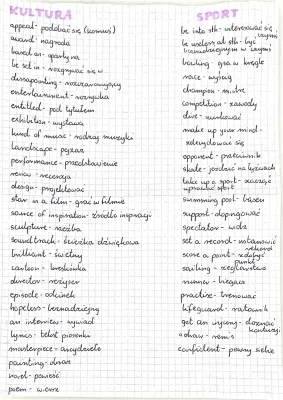 KULTURA
appeal - podobać się (komuś)
award - nagroda
based on - oparty na
be set in - rozgrywać się w
disappointing - rozczarowujący
entertainment - rozrywka
entitled - pod tytułem
exhibition - wystawa
kind of music - rodzaj muzyki
landscape - pejzaż
performance - przedstawienie
review - recenzja
design - projektować
star in a film - grać w filmie
source of inspiration - źródło inspiracji
sculpture - rzeźba
soundtrack - ścieżka dźwiękowa
brilliant - świetny
cartoon - kreskówka
director - reżyser
episode - odcinek
hopeless - beznadziejny
an interview - wywiad
lyrics - tekst piosenki
masterpiece - arcydzieło
painting - obraz
novel - powieść
poem - wiersz
SPORT
be into sth - interesować się
czymś
be useless at sth - być
beznadziejnym w czymś
bowling - gra w kręgle
race - wyścig
champion - mistrz
competition - zawody
dive - nurkować
make up your mind -
zdecydować się
opponent - przeciwnik
skate - jeździć na łyżwach
take up a sport - zacząć
uprawiać sport
swimming pool - basen
support - dopingować
spectator - widz
set a record - ustanowić
rekord
score a point - zdobyć
punkt
sailing - żeglarstwo
runner - biegacz
practise - trenować
lifeguard - ratownik
get an injury - doznać
kontuzji
a draw - remis
confident - pewny siebie